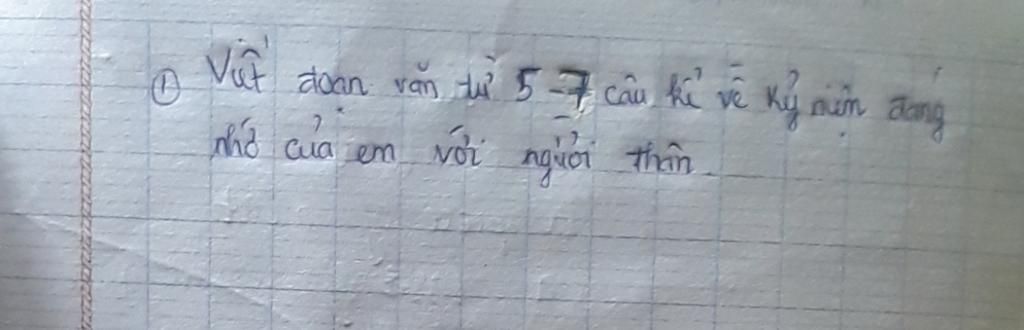 ① Viết đoạn văn từ 5-7 câu kể về kỷ niệm đáng
nhớ của em với người thân